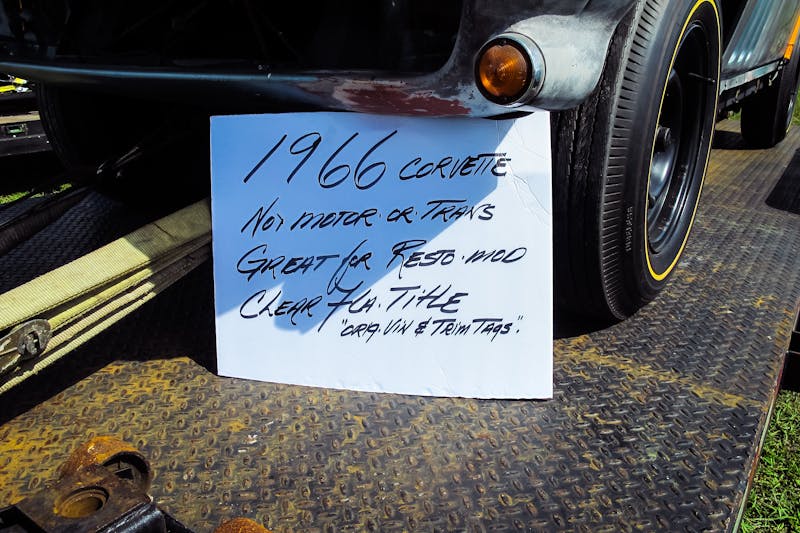 1966 CORVETTE
NO MOTOR OR TRANS
GREAT for RESTO-MOD
CLEAR FLA. TITLE
"ORIG. VIN & TRIM TAGS".